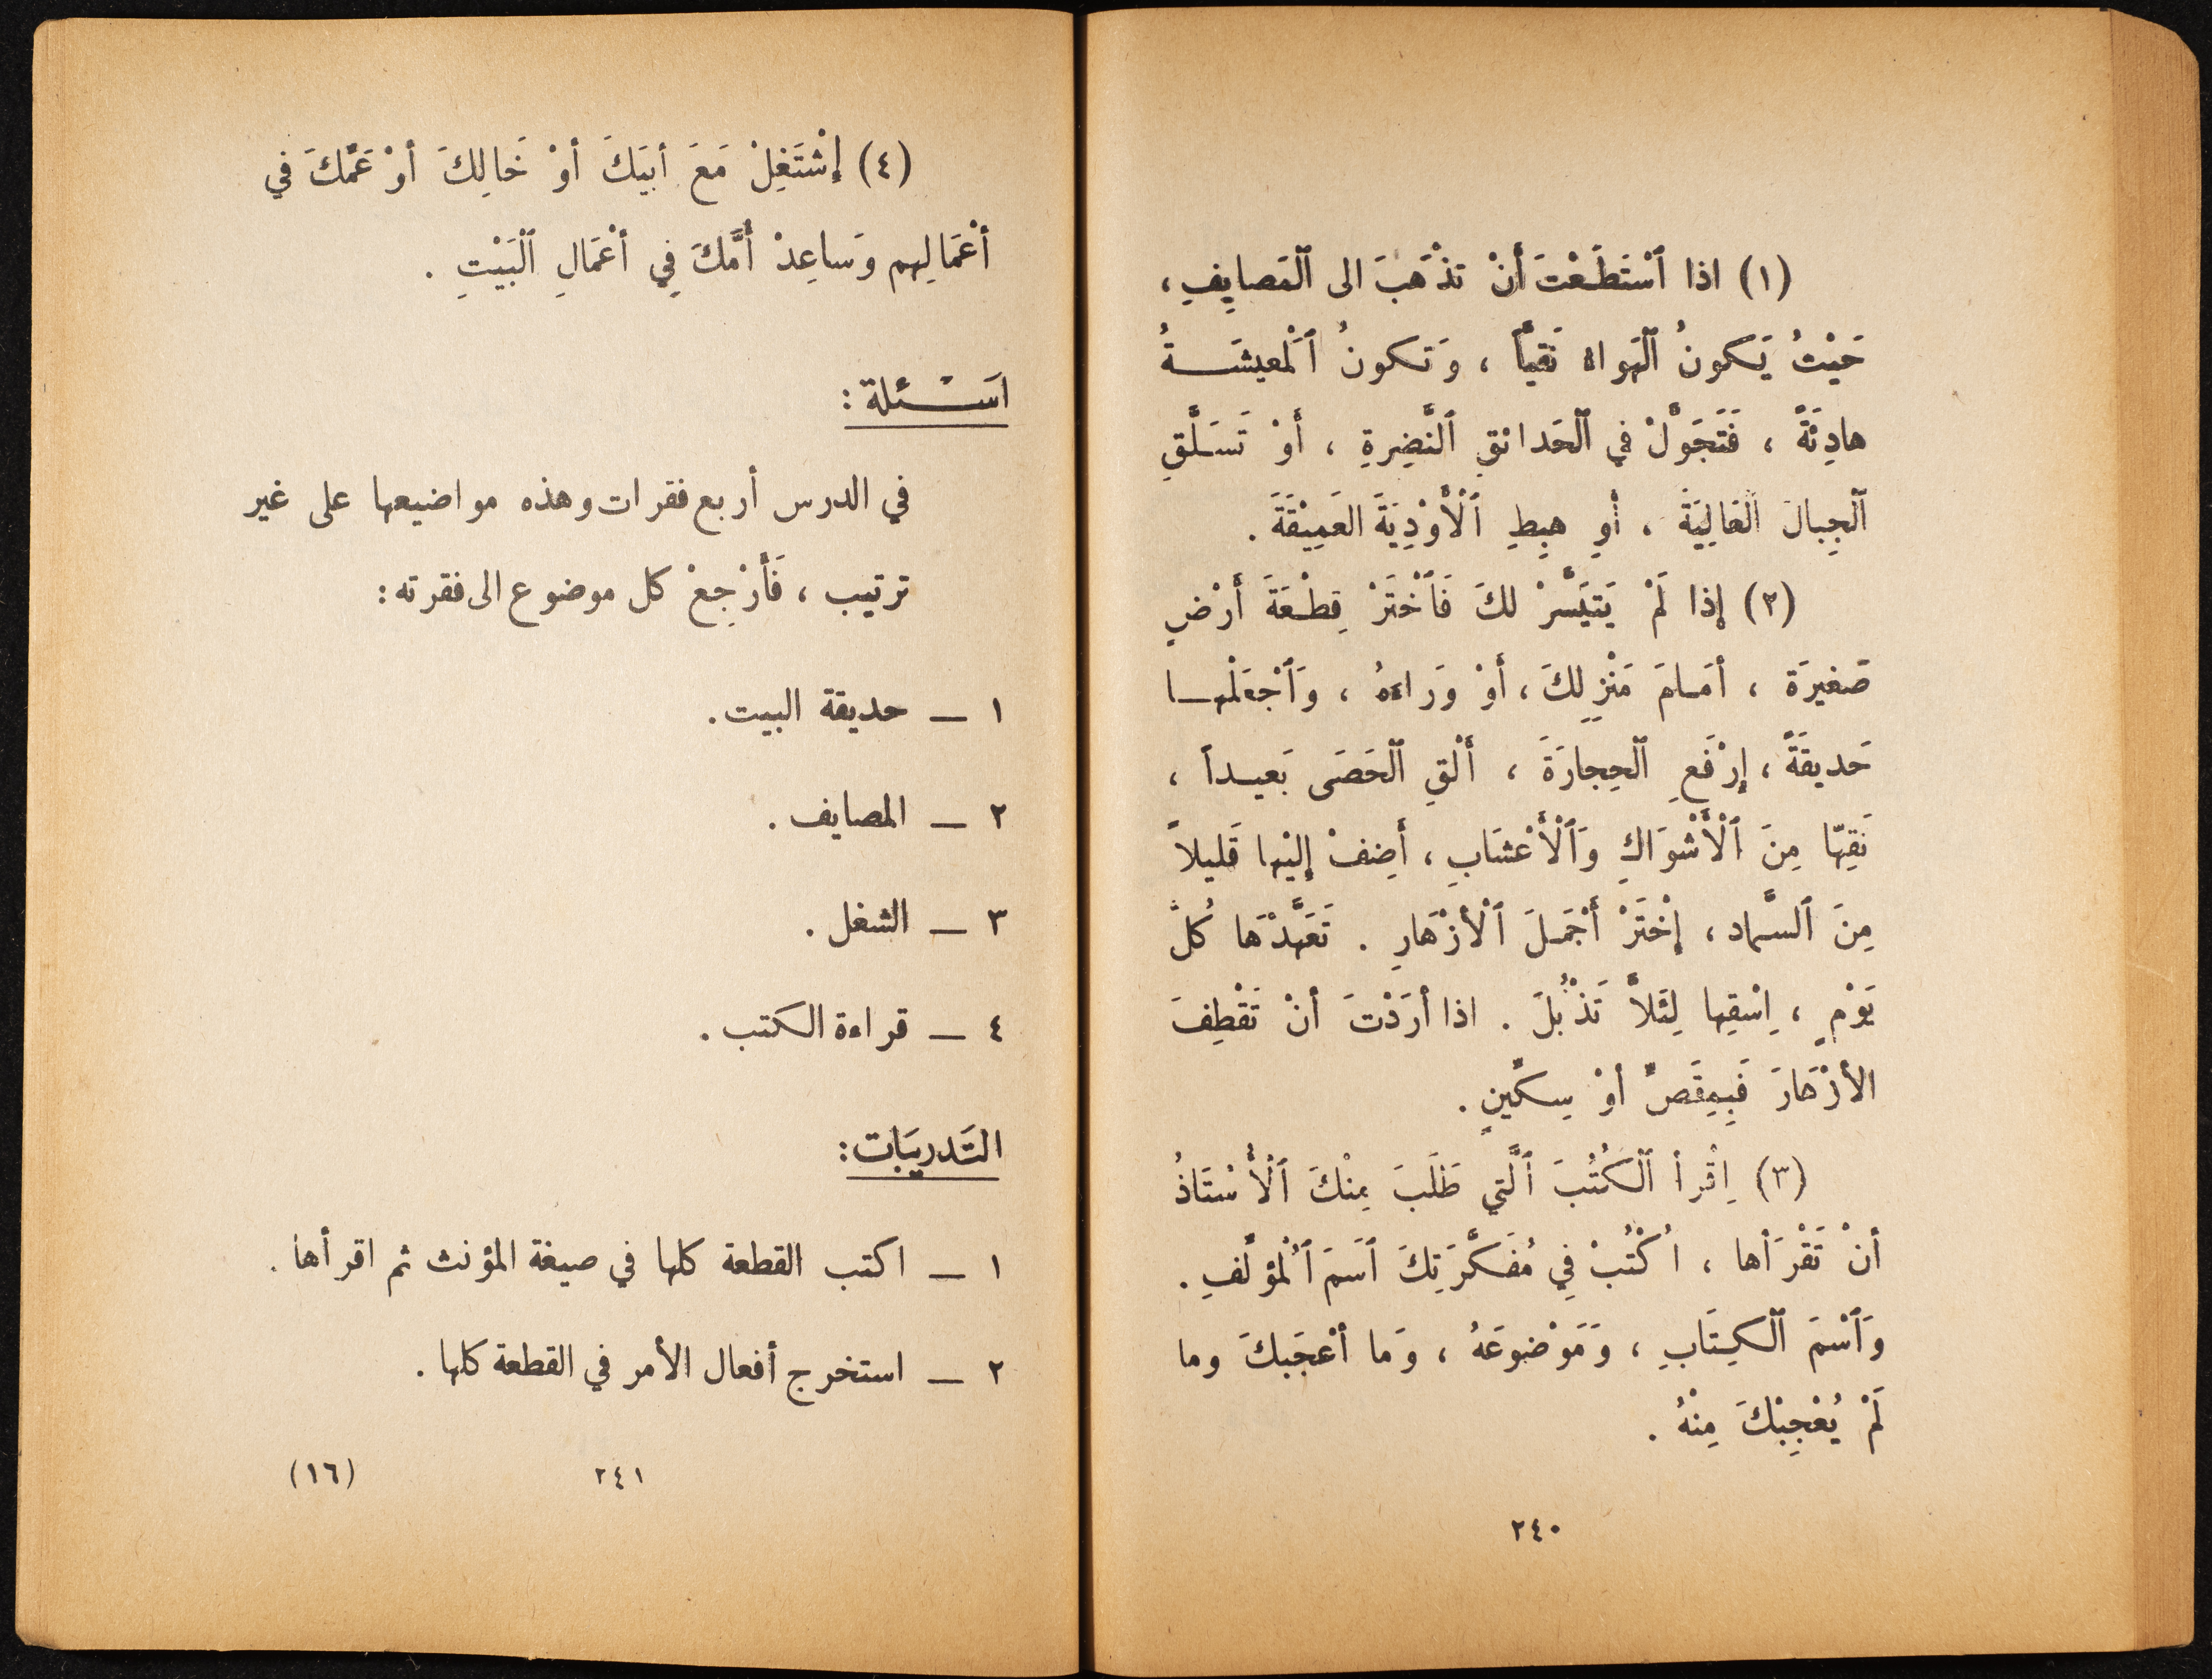 (١) اذا ٱسْتَطَعْتَ أَنْ تذْهَبَ الى ٱلْمَصايِفِ ،
حَيْثُ يَكونُ ٱلْهَواء نَقيّاً ، وَتكونُ ٱلْمَعيشَـــةُ
هادِئَةً ، فَتَجَوَّلْ في ٱلْحَدائقِ ٱلنَّضِرةِ ، أَوْ تَسَلَّقِ
ٱلْجِبالَ ٱلْعَالِيَةَ ، أَوِ هبِطِ ٱلْأَوْدِيَةَ العَمِيْقَةَ .
(٢) إذا لَمْ يَتيَسَّرْ لكَ فَٱخْتَرْ قِطْعَةَ أَرْضٍ
صَغيرَة ، أمَامَ مَنْزِلِكَ ، أَوْ وَراءَهُ ، وَٱجْعَلْهـا
حَديقَةً ، إرْفَعِ ٱلْحِجارَةَ ، أَلْقِ ٱلْحَصَى بَعيـداً ،
نَقِّهَا مِنَ ٱلْأَشْوَاكِ وَٱلْأَعْشَابِ ، أَضِفْ إليْها قَليلاً
مِنَ ٱلسَّماد ، إخْتَرْ أَجْمَلَ ٱلْأزْهَارِ . تَعَهَّدْهَا كُلَّ
يَوْمٍ ، اِسْقِها لِئَلاَّ تَذْبُلَ . اذا أرَدْتَ أنْ تَقْطِفَ
الأزْهَارَ فَبِمِقَصٍّ أوْ سِكّينٍ .
(٣) اِقْرأ ٱلْكُتُبَ ٱلَّتي طَلَبَ مِنْكَ ٱلْأُسْتَاذُ
أنْ تَقْرَأها ، اُكْتُبْ فِي مُفَكِّرَتِكَ ٱسَمَ ٱلْمُؤلِّفِ .
وَٱسْمَ ٱلْكِتَابِ ، وَمَوْضوعَهُ ، وَما أعْجَبكَ وما
لَمْ يُعْجِبْكَ مِنْهُ .
٢٤٠
(٤) إشْتَغِلْ مَعَ أبيَكَ أوْ خَالِكَ أوْ عَمِّكَ في
أعْمَالِهم وَساعِدْ أُمَّكَ فِي أعْمَالِ ٱلْبَيْتِ .
اسَــْئلة :
في الدرس أربع فقرات وهذه مواضيعها على غير
ترتيب ، فَأَرْجِعْ كل موضوع الى فقرته :
١ – حديقة البيت .
٢ – المصايف .
٣ – الشغل .
٤ – قراءة الكتب .
التَدريبَات :
١ – اكتب القطعة كلها في صيغة المؤنث ثم اقرأها .
٢ – استخرج أفعال الأمر في القطعة كلها .
٢٤١
(١٦)